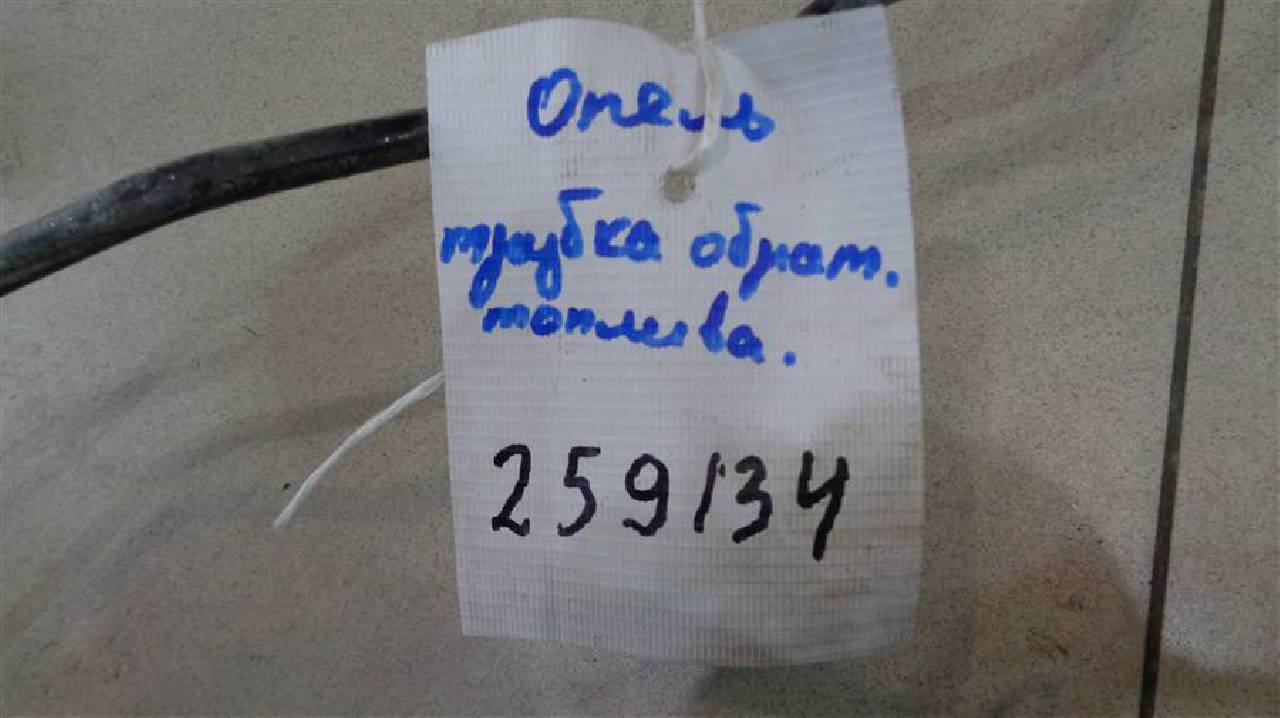 Опель
трубка обрат.
топлива.
259134